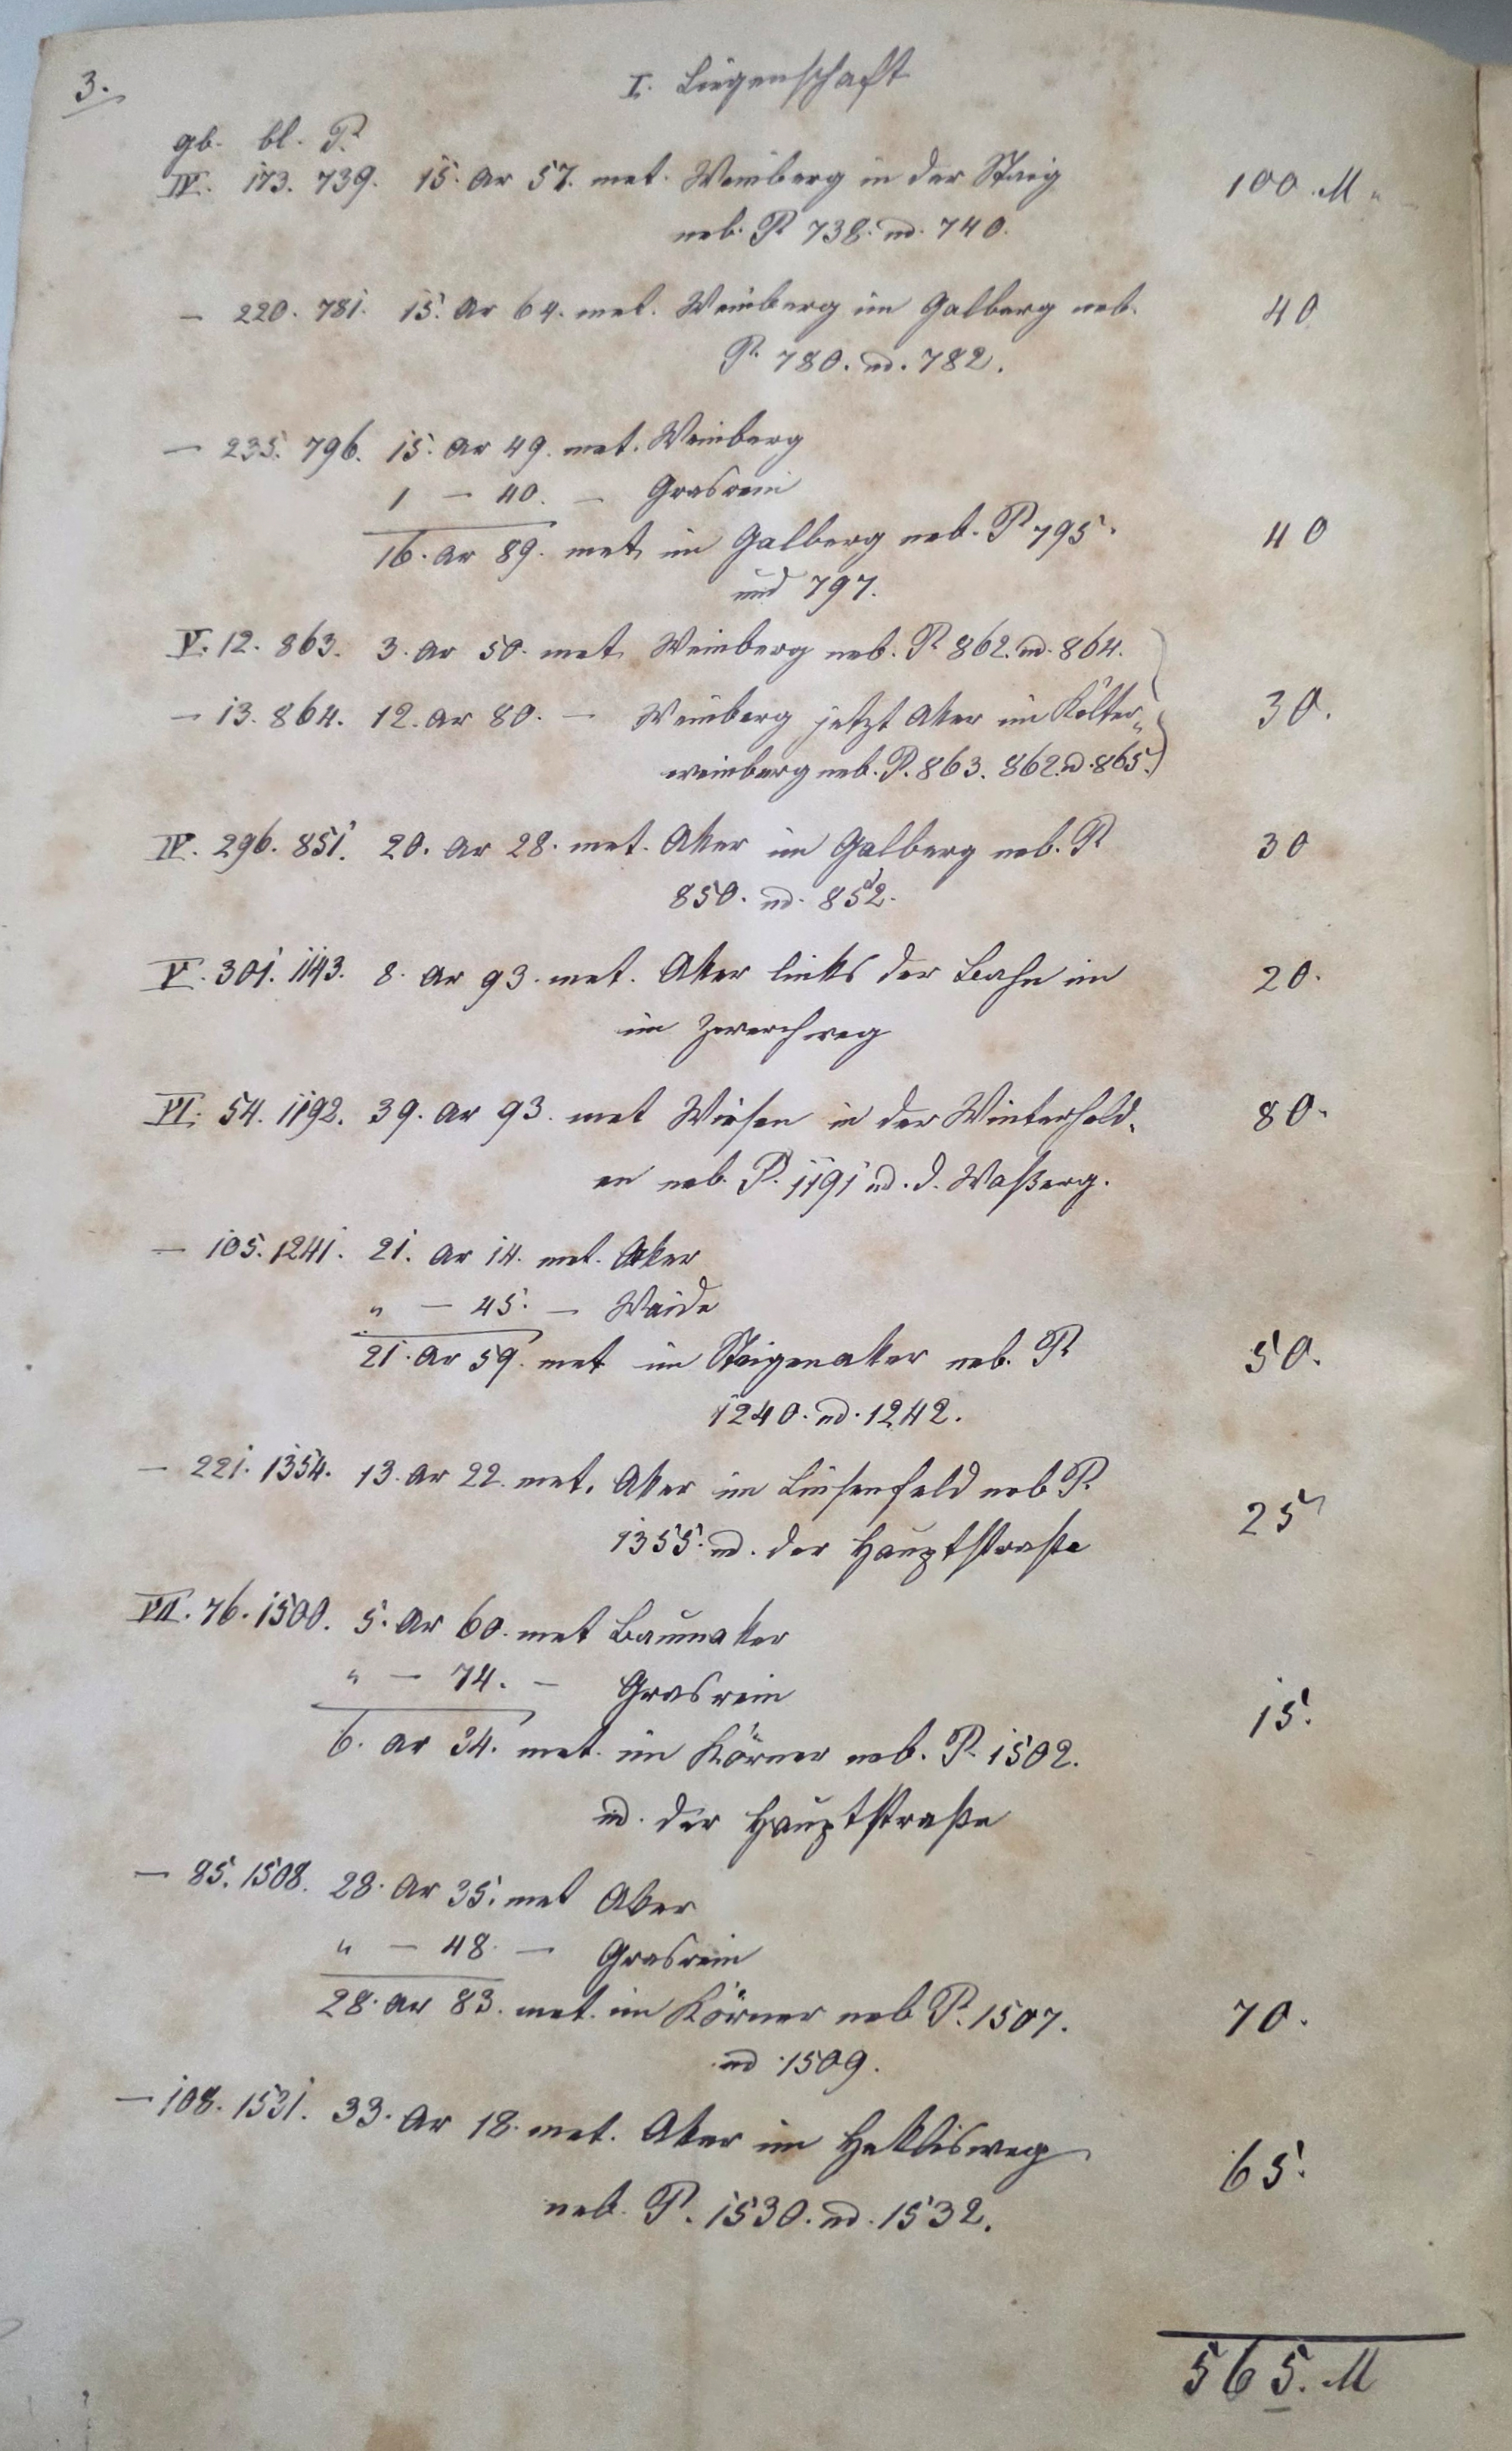 3.
I. Liegenschaft
gb. bl. P.
IV. 173. 739. 15. Ar 57. met. Weinberg in der Staig 100 M
neb. P. 738. ud. 740.
— 220. 781. 15. Ar 64. met. Weinberg im Galberg neb. 40
P. 780. ud. 782.
— 235. 796. 15. Ar 49. met. Weinberg
1 — 40. — Grasrain
16. Ar 89. met. im Galberg neb. P 795. 40
und 797.
V. 12. 863. 3. Ar 50. met. Weinberg neb. P. 862. ud. 864.
— 13. 864. 12. Ar 80. — Weinberg jetzt Aker im Költer- 30.
weinberg neb. P. 863. 862. ud. 865.
IV. 296. 851. 20. Ar 28. met. Aker im Galberg neb. P. 30
850. ud. 852.
V. 301. 1143. 8. Ar 93. met. Aker links der Bahn im 20.
im Zwerchweg
VI. 54. 1192. 39. Ar 93. met Wiesen in der Winterhald- 80.
en neb. P. 1191 ud. d. Waßerg.
— 105. 1241. 21. Ar 14. met. Aker
" — 45. — Waide
21. Ar 59. met im Staigenaker neb. P. 50.
1240. ud. 1242.
— 221. 1354. 13. Ar 22. met. Aker im Linsenfeld neb P. 25
1355. ud. der Hauptstraße
VII. 76. 1500. 5. Ar 60. met Baumaker
" — 74. — Grasrain
6. Ar 34. met. im Körner neb. P. 1502. 15.
ud. der Hauptstraße
— 85. 1508. 28. Ar 35. met Aker
" — 48. — Grasrain
28. Ar 83. met. im Körner neb P. 1507. 70.
ud. 1509.
— 108. 1531. 33. Ar 18. met. Aker im 65.
neb. P. 1530. ud. 1532.
565. M